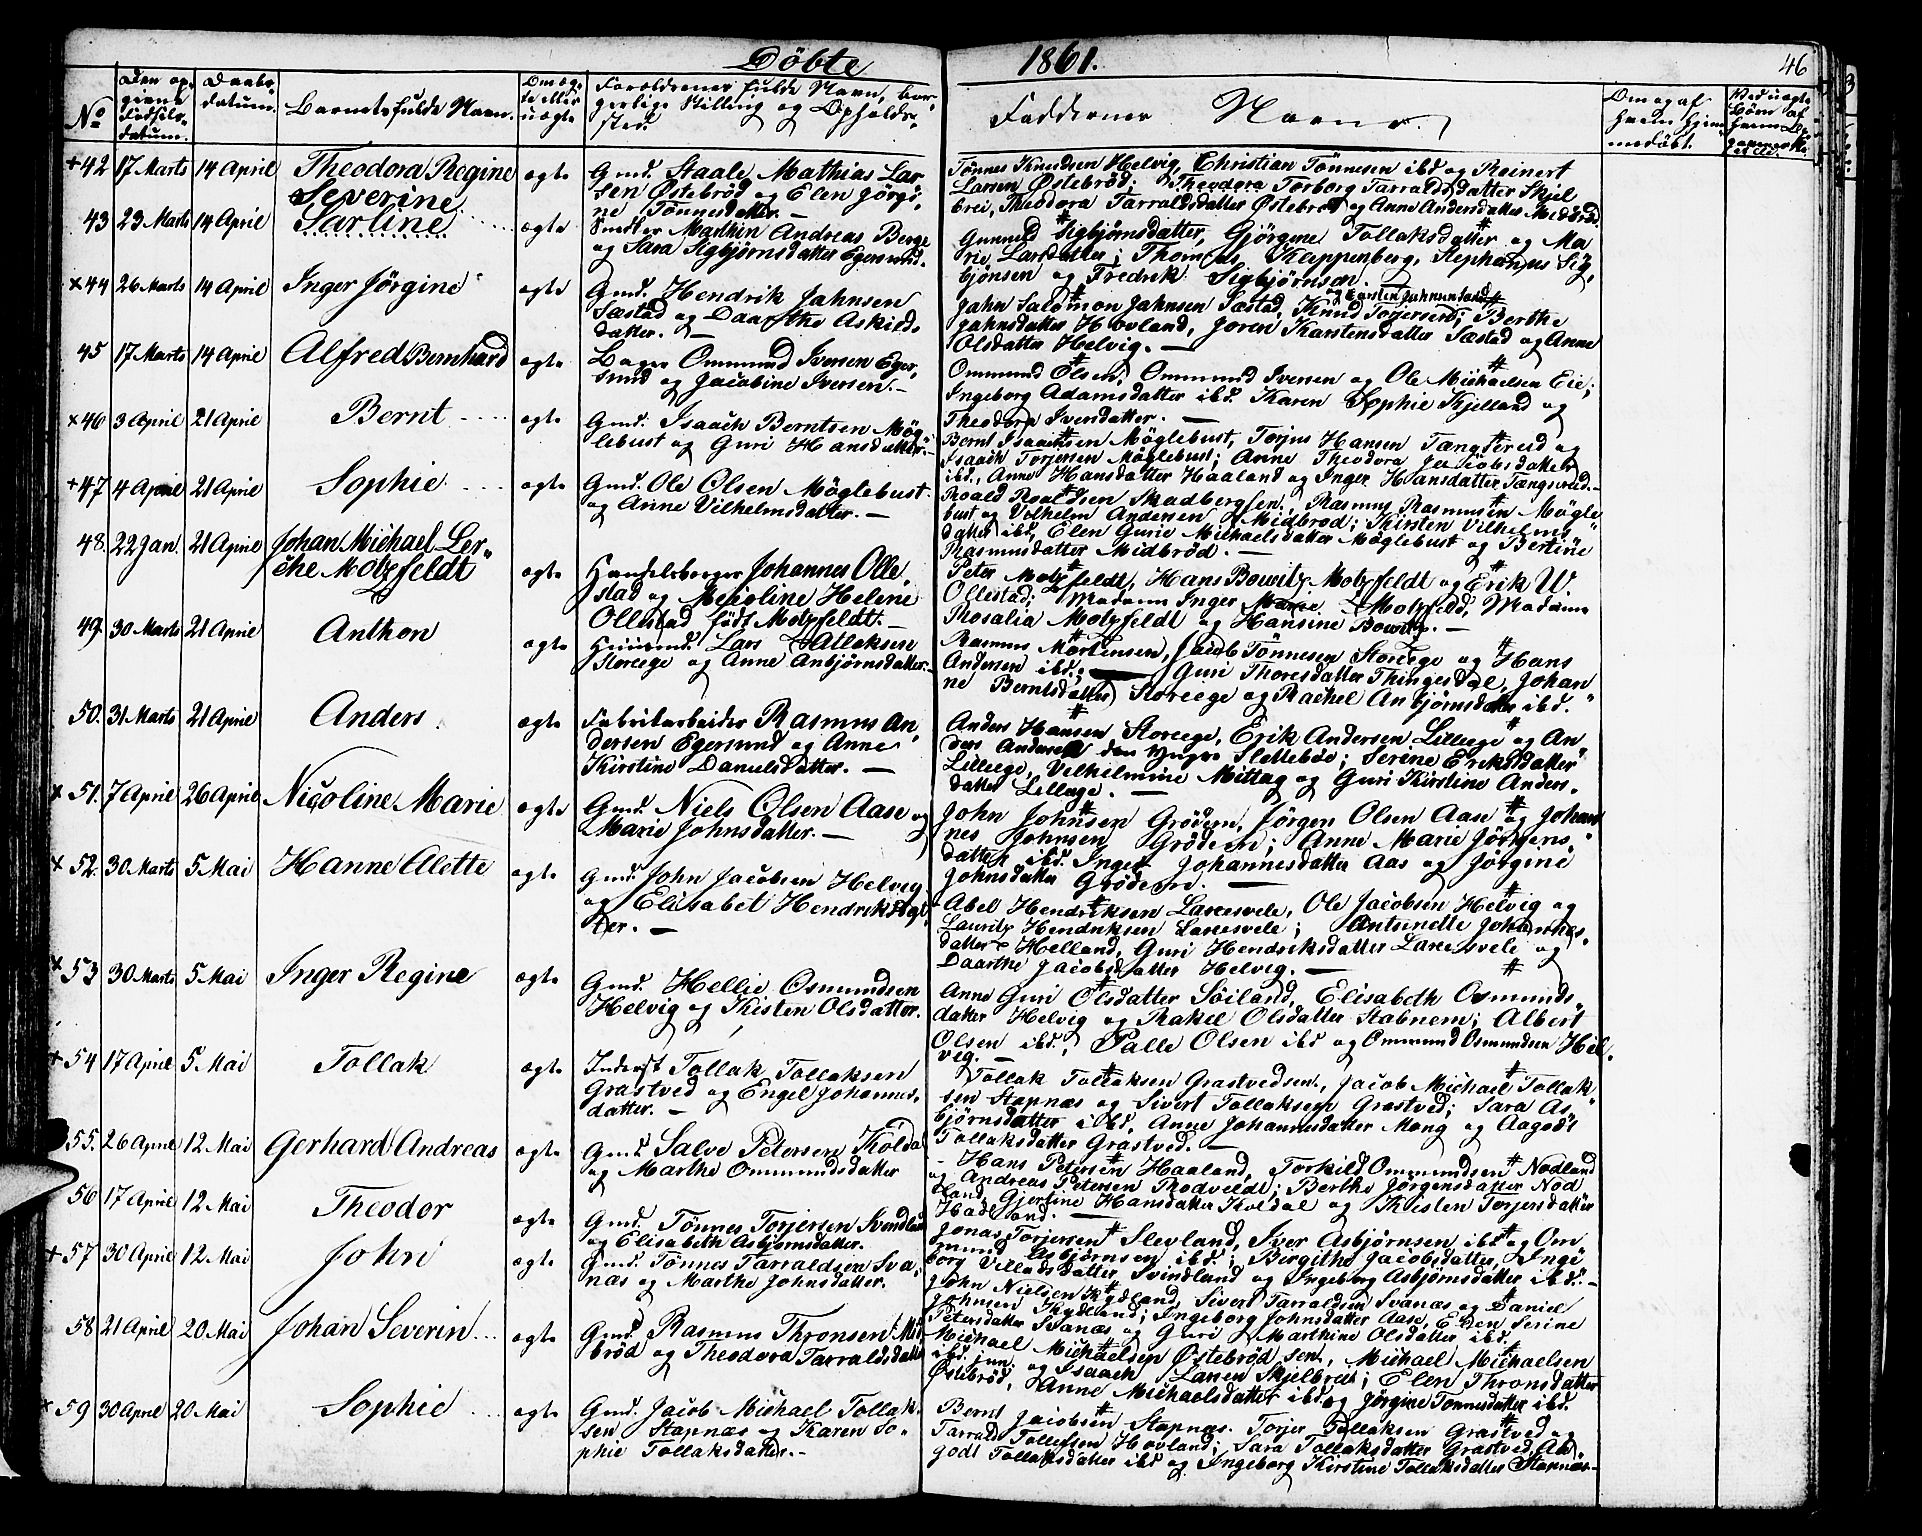 Döbte 1861. 46
No
Den opgivne Fødselsdatum.
Daabsdatum.
Barnets fulde Navn.
Om ægte eller uægte
Forældrenes fulde Navn, borgerlige Stilling og Opholdssted.
Faddernes Navne.
Om og af hvem hjemmedøbt.
+42 17 Marts 14 April Theodora Regine Severine ægte
Gmd. Staale Mathias Larsen Østebröd og Elen Jörgine Tönnesdatter. —
Tönnes Knudsen Helvig, Christian Tönnesen ibd og Reinert
Larsen Østebröd; Theodora Torborg Tarraldsdatter Skjel
brei, Theodora Tarraldsdatter Östebröd og Anne Andersdatter Midbröd.
43 23 Marts 14 April Sartine ægte
Smeller Mathin Andreas Berge
og Sara Sigbjørnsdatter Egersund.
Gunnild Sigbjørnsdatter, Gjörgine Tollaksdatter og Ma
rie Larsdatter; Thomas Kleppenberg, Stephanus Sig,
bjönsen og Fredrik Sigbjörnsen.
×44 26 Marts 14 April Inger Jörgine ægte
Gmd. Hendrik Jahnsen
Sæstad og Daarthe Askilds
datter. —
og Karsten Jahnsen ibd
Jahn Salomon Jahnsen Sæstad, Knud Torjersen; Berthe
Jahnsdatter Hovland, Joren Karstensdatter Sæstad og Anne
Olsdatter Helvig. —
45 17 Marts 14 April Alfred Bernhard ægte
Bager Ommund Iversen Eger,
sund og Jacobine Iversen. —
Ommund Olsen, Ommund Iversen og Ole Michaelsen Eie;
Ingeborg Adamsdatter ibd. Karen Sophie Kjelland og
Theodora Iversdatter. —
×46 3 April 21 April Bernt ægte
Gmd. Isaach Berntsen Møg
lebust og Guri Hansdatter. —
Bernt Isaachsen Möglebust, Torjus Hansen Tængsreid og
Isaach Torjersen Möglebust; Anne Theodora Jacobsdatter
ibd., Anne Hansdatter Haaland og Inger Hansdatter Tængsreid. —
+47 4 April 21 April Sophie ægte
Gmd. Ole Olsen Möglebust
og Anne Vilhelmsdatter. —
Roald Roaldsen Skadbergsen, Rasmus Rasmusen Mögle
bust og Vilhelm Andersen Midbröd; Kirsten Vilhelms
datter ibd, Elen Gurie Michaelsdatter Möglebust og Bertine
Rasmusdatter Midbröd. —
48. 22 Jan. 21 April Johan Michael Ler
che Motzfeldt ægte
Handelsborger Johannes Olle,
stad og Mejoline Helene
Ollestad født Motzfeldt. —
Peter Motzfeldt, Hans Bowitz Motzfeldt og Erik W.
Ollestad; Madame Inger Marie Motzfeld, Madame
Rosalia Motzfeldt og Hansine Bowitz. —
49. 30 Marts 21 April Anthon ægte
Huusmd. Lars Atlaksen
Storeege og Anne Anbjørnsdatter. —
Rasmus Mortensen, Jacob Tönnesen Storeege og Hans
Andersen ibd; Guri Thoresdatter Thingesdal, Johan
ne Berntsdatter Storeege og Rachel Anbjørnsdatter ibd.
50. 31 Marts 21 April Anders ægte
Fabrikarbeider Rasmus An,
dersen Egersund og Anne
Kirstine Danielsdatter. —
Anders Hansen Storeege, Erik Andersen Lilleege og An
ders Andersen den Yngre Slettebøe; Serine Eriksdatter
Lilleege, Vilhelmine Mittag og Guri Kirstine Anders.
datter Lilleege. —
× 51. 7 April 26 April Nicoline Marie ægte
Gmd. Niels Olsen Aase og
Marie Johnsdatter. —
John Johnsen Grödem, Jörgen Olsen Aase og Johan
nes Johnsen Grödem; Anne Marie Jörgens,
datter ibd. Inger Johannesdatter Aas og Jörgine
Johnsdatter Grödem. —
× 52. 30 Marts 5 Mai Hanne Alette ægte
Gmd. John Jacobsen Helvig
og Elisabet Hendriksdat
ter. —
Abel Hendriksen Laxesvele, Ole Jacobsen Helvig og
Lauritz Hendriksen Laxesvele; Antonette Johannes.
datter Helland, Guri Hendriksdatter Laxesvele og
Daarthe Jacobsdatter Helvig. —
× 53 30 Marts 5 Mai Inger Regine ægte
Gmd. Hellie Osmundsen
Helvig og Kisten Olsdatter.
Anne Guri Olsdatter Söiland, Elisabeth Osmunds.
datter Helvig og Rakel Olsdatter Stabnem; Albert
Olsen ibd, Palle Olsen ibd og Ommund Osmundsen Hel.
vig. —
+ 54 17 April 5 Mai Tollak ægte
Inderst Tollak Tollaksen
Grastved og Engel Johannes,
datter. —
Tollak Tollaksen Grastvedsen., Jacob Michael Tollak
sen Stapnæs og Sivert Tollaksen Grastved; Sara As
bjørnsdatter ibd, Anne Johannesdatter Mong og Aagodt
Tollaksdatter Grastved. —
55. 26 April 12 Mai Gerhard Andreas ægte
Gmd. Salve Petersen Kölda
og Marthe Ommundsdatter
Hans Petersen Haaland, Torkild Ommundsen Nodland
og Andreas Petersen Rodveldt; Berthe Jörgensdatter Nod
land, Gjertine Hansdatter Koldal og Kristen Torjersdatter
Hadland. —
56 17 April 12 Mai Theodor ægte
Gmd. Tönnes Torjersen Svindland
og Elisabeth Asbjørnsdatter.
Jonas Torjersen Slevland, Iver Asbjørnsen ibd og Om
mund Asbjørnsen ibd; Birgithe Jacobsdatter, Inge
borg Villadsdatter Svindland og Ingeborg Asbjørnsdatter ibd. —
+ 57 30 April 12 Mai John ægte
Gmd. Tönnes Tarraldsen Sva,
næs og Marthe Johnsdatter.
John Nielsen Kydland, Sivert Tarraldsen Svanæs og Daniel
Johnsen Kydland; Ingeborg Johnsdatter Aase, Elen Serine
Petersdatter Svanæs og Guri Marthine Olsdatter ibd.
58 21 April 20 Mai Johan Severin ægte
Gmd. Rasmus Thronsen Mid
bröd og Theodora Tarraldsdatter
Michael Michaelsen Östebröd sen., Michael Michaelsen
ibd. jun. og Isaach Larsen Skjelbrei; Elen Thronsdatter
Östebröd, Anne Michaelsdatter ibd og Jörgine Tönnesdatter ibd.
× 59 30 April 20 Mai Sophie ægte
Gmd. Jacob Michael Tollak
sen Stapnæs og Karen So,
phie Tollaksdatter. —
Bernt Jacobsen Stapnæs, Torjer Tollaksen Grastved og
Tarrald Tollefsen Hovland; Sara Tollaksdatter Grastved, Aa
godt Tollaksdatter ibd og Ingeborg Kirstine Tollaksdatter Stapnæs —